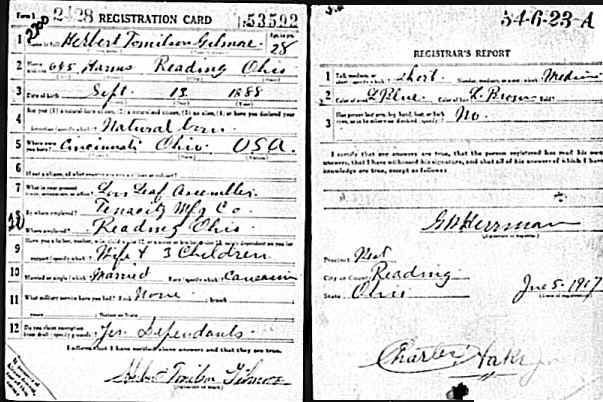 Form 1 2128 REGISTRATION CARD 53592
1 Name in full Herbert Tomilson Gilmore Age in yrs. 28
2 Home 645 Harms Reading Ohio
3 Date of birth Sept. 13 1888
4 Are you (1) a natural born citizen, (2) a naturalized citizen, (3) an alien, (4) or have you declared your
intention (specify which)? Natural born
5 Where were you born? Cincinnati Ohio USA
6 If not a citizen, of what country are you a citizen or subject?
7 What is your present trade, occupation, or office? Loos Leaf Assembler
8 By whom employed? Tenacity Mfg Co.
Where employed? Reading Ohio
9 Have you a father, mother, wife, child under 12, or a sister or brother under 12, solely dependent on you for
support (specify which)? Wife & 3 Children
10 Married or single (which)? Married Race (specify which)? Caucasian
11 What military service have you had? Rank None branch
years Nation or State
12 Do you claim exemption from draft (specify grounds)? For Dependants
I affirm that I have verified above answers and that they are true.
Herbert Tomilson Gilmore
34-6-23-A
REGISTRAR'S REPORT
1 Tall, medium, or short (specify which)? Short Slender, medium, or stout (which)? Medium
2 Color of eyes L Blue Color of hair L. Brown Bald?
3 Has person lost arm, leg, hand, foot, or both eyes, or is he otherwise disabled (specify)? No.
I certify that my answers are true, that the person registered has read his own
answers, that I have witnessed his signature, and that all of his answers of which I have
knowledge are true, except as follows:
Herrman
Precinct West
City or County Reading
State Ohio
June 5-1917